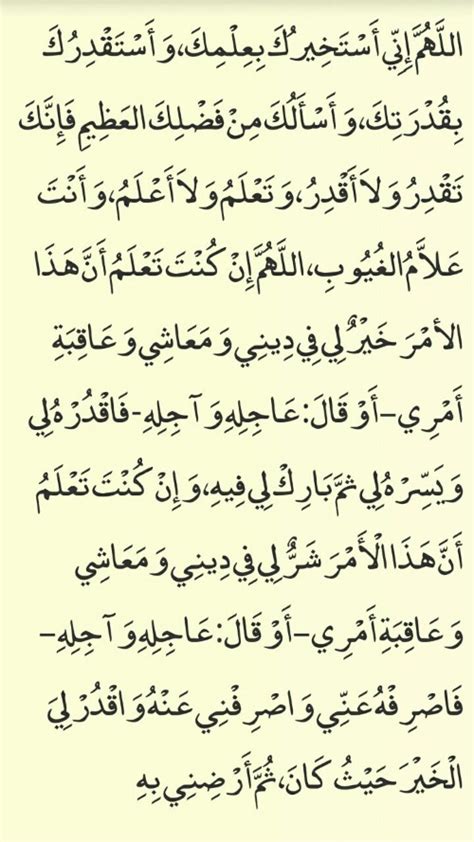 اللَّهُمَّ إِنِّي أَسْتَخِيرُكَ بِعِلْمِكَ، وَأَسْتَقْدِرُكَ
بِقُدْرَتِكَ، وَأَسْأَلُكَ مِنْ فَضْلِكَ العَظِيمِ فَإِنَّكَ
تَقْدِرُ وَلاَ أَقْدِرُ، وَتَعْلَمُ وَلاَ أَعْلَمُ، وَأَنْتَ
عَلاَّمُ الغُيُوبِ، اللَّهُمَّ إِنْ كُنْتَ تَعْلَمُ أَنَّ هَذَا
الأمْرَ خَيْرٌ لِي فِي دِينِي وَمَعَاشِي وَعَاقِبَةِ
أَمْرِي – أَوْ قَالَ: عَاجِلِهِ وَآجِلِهِ - فَاقْدُرْهُ لِي
وَيَسِّرْهُ لِي ثمَّ بَارِكْ لِي فِيهِ، وَإِنْ كُنْتَ تَعْلَمُ
أَنَّ هَذَا الْأَمْرَ شَرٌّ لِي فِي دِينِي وَمَعَاشِي
وَعَاقِبَةِ أَمْرِي – أَوْ قَالَ: عَاجِلِهِ وَآجِلِهِ –
فَاصْرِفْهُ عَنِّي وَاصْرِفْنِي عَنْهُ وَاقْدُرْ لِيَ
الْخَيْرَ حَيْثُ كَانَ، ثُمَّ أَرْضِنِي بِهِ